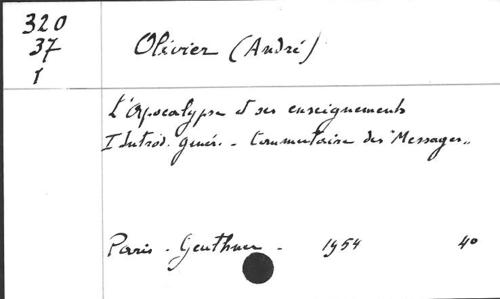 320
37
1
Olivier (André)
L'Apocalypse et ses enseignements
I Introd. génér. - Commentaire des "Messages"
Paris - Geuthner - 1954 4º